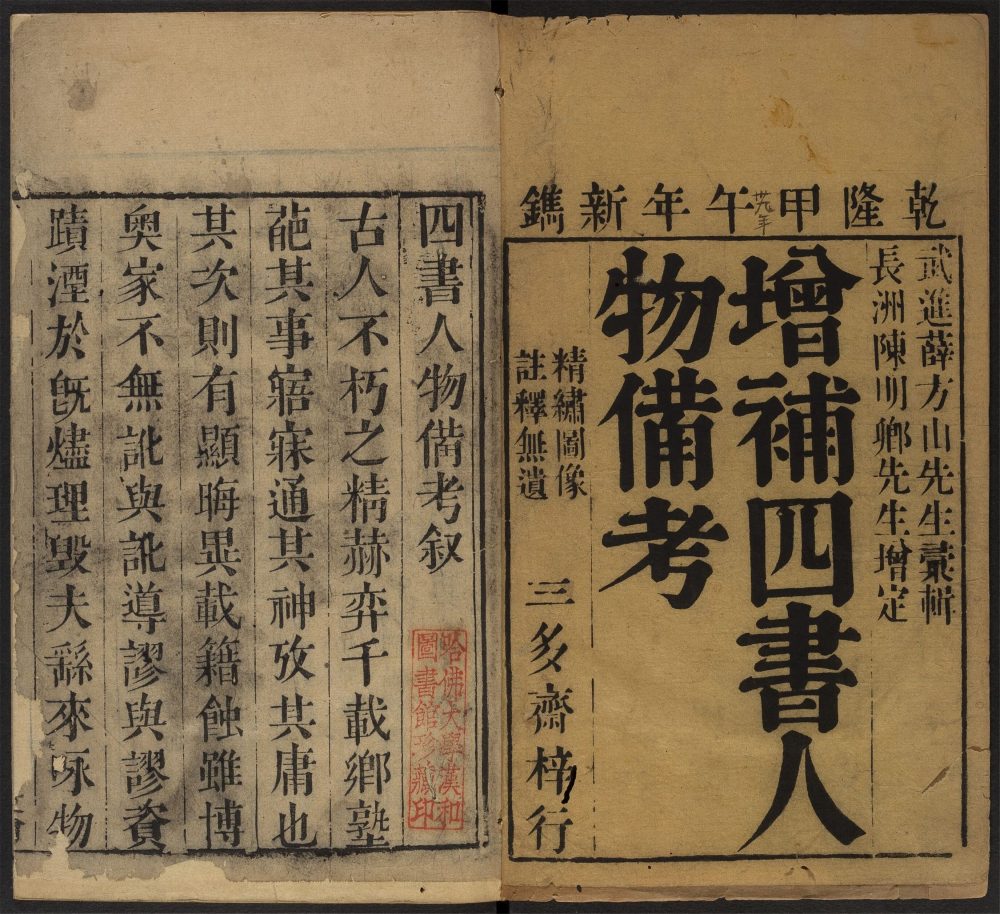 乾隆甲午年新鐫
卅九年
武進薛方山先生彙輯
長洲陳明卿先生增定
增補四書人
物備考
精繡圖像
註釋無遺
三多齋梓行
四書人物備考叙
哈佛大學漢和
圖書館珍藏印
古人不朽之精赫弈千載鄉塾
葩其事寤寐通其神攷其庸也
其次則有顯晦異載籍蝕雖博
奧家不無訛與訛導謬與謬資
蹟湮於旣燼理毀夫繇來琢物